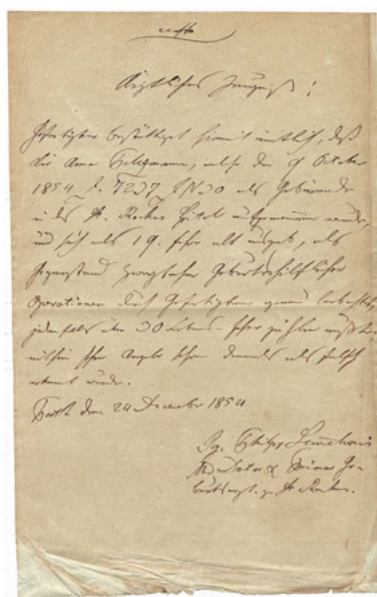 Ärztliches Zeugniß!
Gefertigter bestättiget hiemit ämtlich, daß
die Anna welche den 9 October
1854 J. als Gebärende
in das St. Rochus Spital aufgenommen wurde,
und sich als 19. Jahre alt ausgab, als
Gegenstand geburtshilflicher
Operationen dem Gefertigten genau beobachtet,
jedenfals über 30 Lebens-Jahre zählen mußte,
mithin Ihre Angabe schon damals als falsch
erkannt wurde.
Pesth den 24 December 1854
Ig. Philipp Semmelweis
Med Doctor & Primar Ge-
burtsarzt. zu St Rochus.